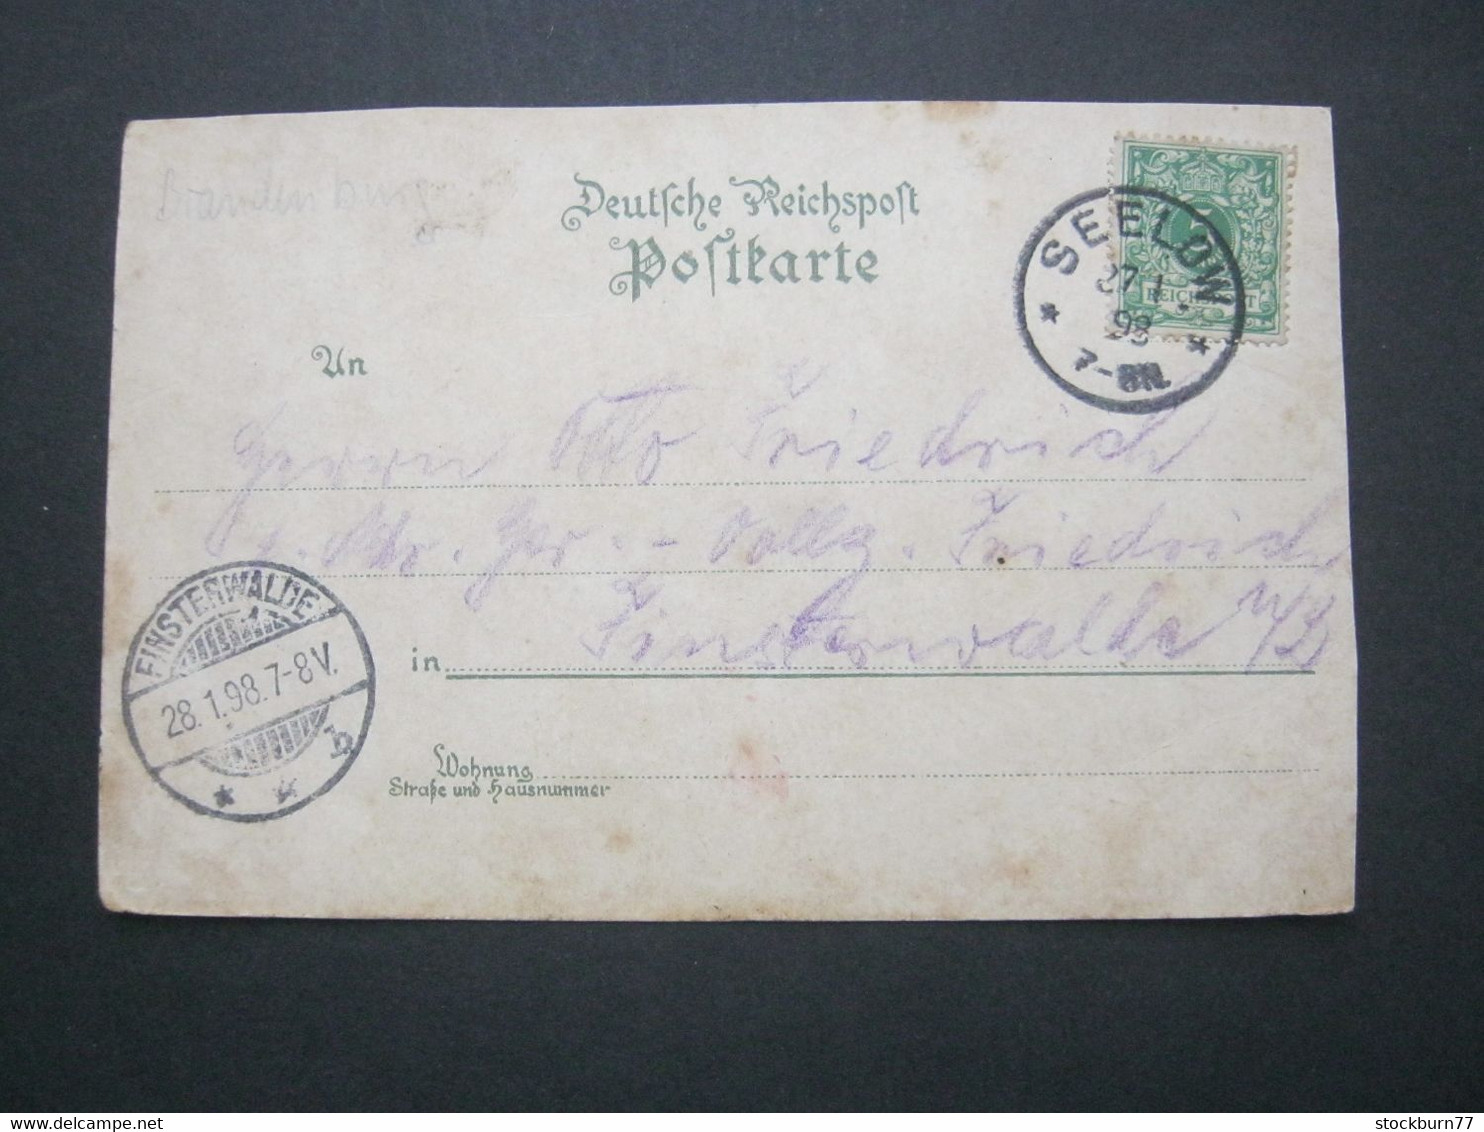 Brandenburg
Deutsche Reichspost
Postkarte
SEELOW
27 1
98
7-8N.
REICHSPOST
An
Herrn Otto Friedrich
Ger.-Vollz. Friedrich
in Finsterwalde N/L
FINSTERWALDE
28.1.98.7-8V.
b
Wohnung
Straße und Hausnummer
delcampe.net
stockburn77